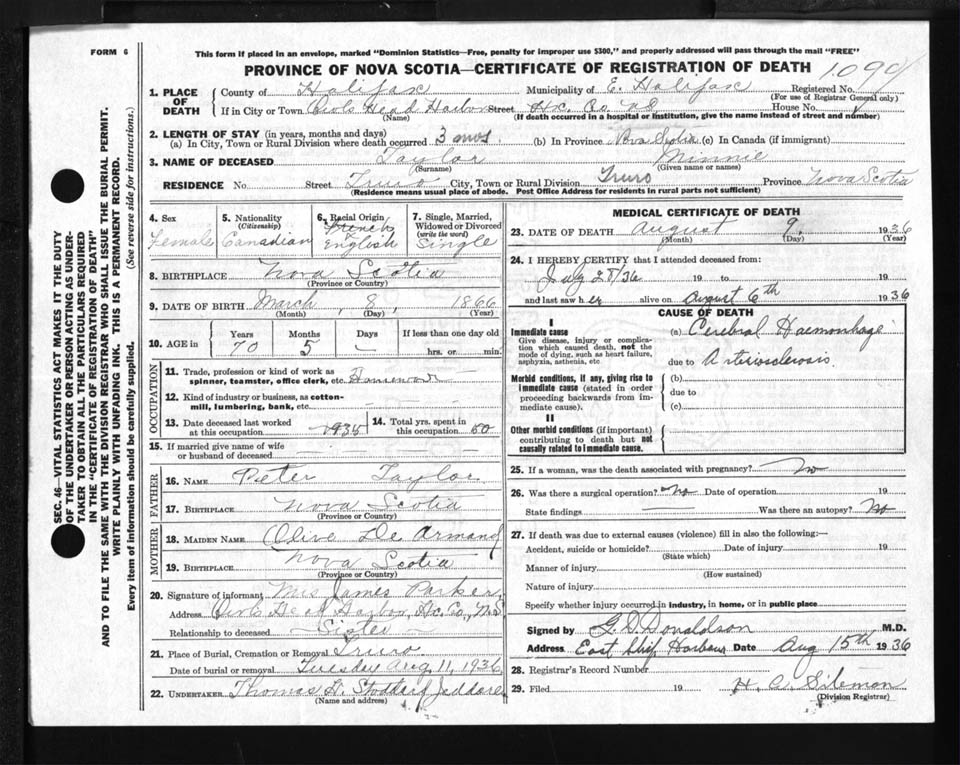 FORM 6
This form if placed in an envelope, marked "Dominion Statistics—Free, penalty for improper use $300," and properly addressed will pass through the mail "FREE"
PROVINCE OF NOVA SCOTIA—CERTIFICATE OF REGISTRATION OF DEATH
1. PLACE OF DEATH
County of Halifax Municipality of E. Halifax Registered No. 1090
(For use of Registrar General only)
If in City or Town Owls Head Harbor Street Hx. Co. NS House No.
(Name) (If death occurred in a hospital or institution, give the name instead of street and number)
2. LENGTH OF STAY (in years, months and days)
(a) In City, Town or Rural Division where death occurred 3 mos. (b) In Province Nova Scotia (c) In Canada (if immigrant)
3. NAME OF DECEASED Taylor Minnie
(Surname) (Given name or names)
RESIDENCE No. Street Truro City, Town or Rural Division Truro Province Nova Scotia
(Residence means usual place of abode. Post Office Address for residents in rural parts not sufficient)
4. Sex
Female
5. Nationality
(Citizenship)
Canadian
6. Racial Origin
French
English
7. Single, Married, Widowed or Divorced
(write the word)
Single
8. BIRTHPLACE Nova Scotia
(Province or Country)
9. DATE OF BIRTH March, 8, 1866
(Month) (Day) (Year)
10. AGE in
Years Months Days If less than one day old
70 5 — hrs. or min.
OCCUPATION
11. Trade, profession or kind of work as
spinner, teamster, office clerk, etc.
12. Kind of industry or business, as cotton-
mill, lumbering, bank, etc. —
13. Date deceased last worked
at this occupation 1935
14. Total yrs. spent in
this occupation 50
15. If married give name of wife
or husband of deceased —
FATHER
16. NAME Peter Taylor
17. BIRTHPLACE Nova Scotia
(Province or Country)
MOTHER
18. MAIDEN NAME Olive De Armand
19. BIRTHPLACE Nova Scotia
(Province or Country)
20. Signature of informant Mrs James Parker
Address Owls Head Harbor, Hx. Co., N.S.
Relationship to deceased —Sister—
21. Place of Burial, Cremation or Removal Truro
Date of burial or removal Tuesday Aug 11, 1936
22. UNDERTAKER Thomas H. Stoddard Jeddore
(Name and address)
MEDICAL CERTIFICATE OF DEATH
23. DATE OF DEATH August 9, 1936
(Month) (Day) (Year)
24. I HEREBY CERTIFY that I attended deceased from:
July 28/36 19 to 19
and last saw her alive on August 6th 1936
CAUSE OF DEATH
I
Immediate cause
Give disease, injury or complication which caused death, not the mode of dying, such as heart failure, asphyxia, asthenia, etc.
(a) Cerebral Haemorrhage
due to Arteriosclerosis
Morbid conditions, if any, giving rise to immediate cause (stated in order proceeding backwards from immediate cause).
(b)
due to
(c)
II
Other morbid conditions (if important) contributing to death but not causally related to immediate cause.
25. If a woman, was the death associated with pregnancy? No
26. Was there a surgical operation? No Date of operation 19
State findings — Was there an autopsy? No
27. If death was due to external causes (violence) fill in also the following:—
Accident, suicide or homicide? Date of injury 19
(State which)
Manner of injury
(How sustained)
Nature of injury
Specify whether injury occurred in industry, in home, or in public place
Signed by G. D. Donaldson M.D.
Address East Ship Harbour Date Aug 15th 1936
28. Registrar's Record Number
29. Filed 19
(Division Registrar)
SEC. 46—VITAL STATISTICS ACT MAKES IT THE DUTY
OF THE UNDERTAKER OR PERSON ACTING AS UNDER-
TAKER TO OBTAIN ALL THE PARTICULARS REQUIRED
IN THE "CERTIFICATE OF REGISTRATION OF DEATH"
AND TO FILE THE SAME WITH THE DIVISION REGISTRAR WHO SHALL ISSUE THE BURIAL PERMIT.
WRITE PLAINLY WITH UNFADING INK. THIS IS A PERMANENT RECORD.
Every item of information should be carefully supplied. (See reverse side for instructions.)